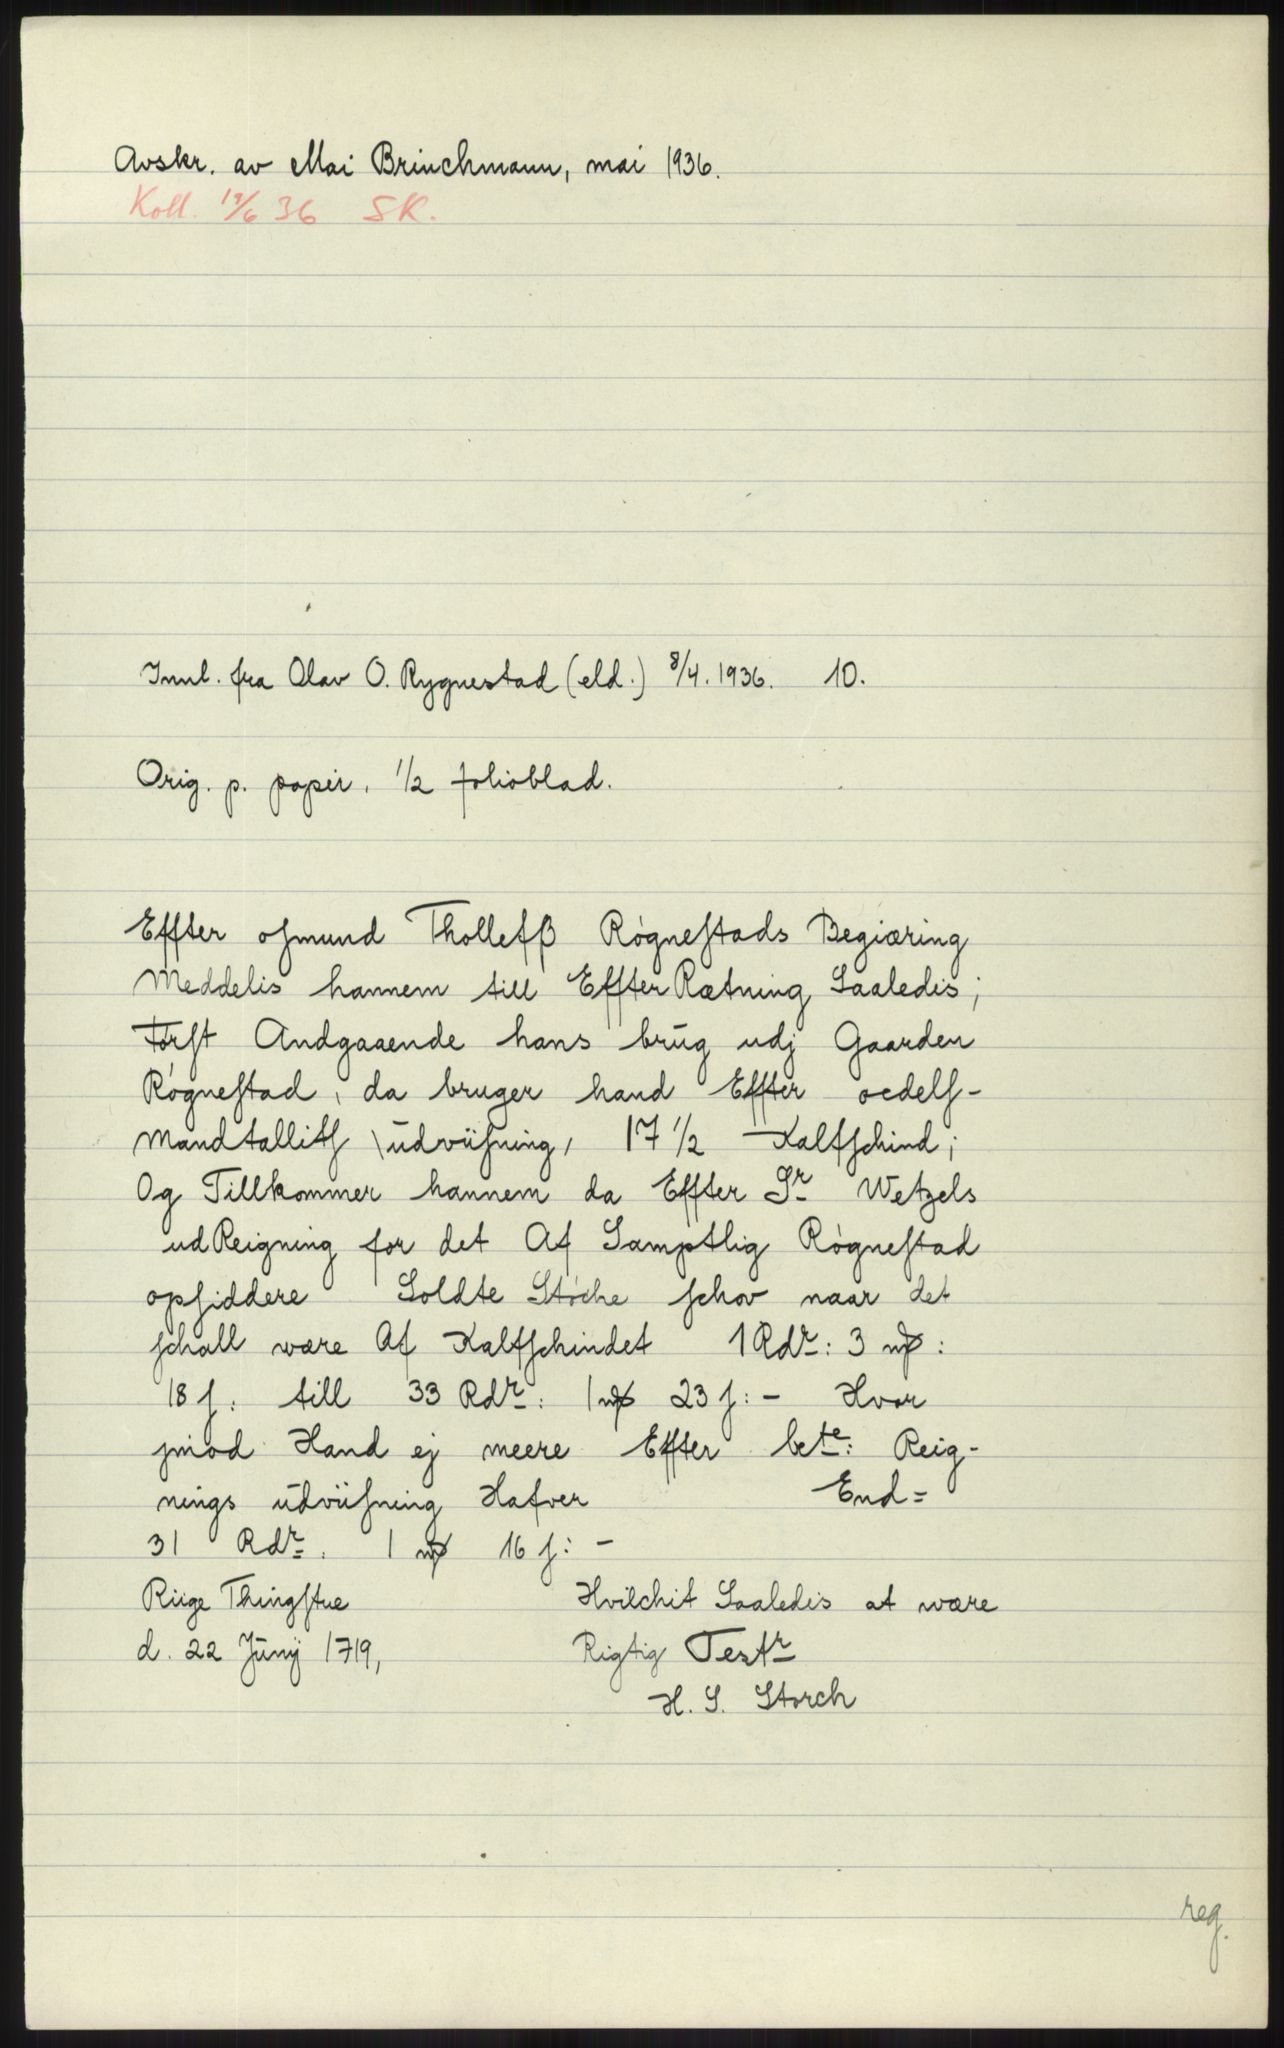 Avskr. av Mai Brinchmann, mai 1936.
Koll. 17/6 36 SK.
Innl. fra Olav O. Rygnestad (eld.) 8/4. 1936. 10.
Orig. p. papir, 1/2 folioblad.
Effter osmund Thollefß Røgneſtads Begiæring
Meddelis hannem till EffterRætning Saaledis;
Førſt Andgaaende hans brūg udj Gaarden
Røgneſtad, da bruger hand Effter oedelſ-
Mandtallitſ \ūdviiſning, 17 1/2 Kalfſchind;
Og Tillkommer hannem da Effter Sr Wetzels
udReigning for det Af Samptlig Røgneſtad
opſiddere Soldte Støche ſchov naar det
ſchall være Af Kalfſchindet 1 Rdr: 3 mȹ:
18 ſ: till 33 Rdr: 1 mȹ 23 ſ: - Hvor
imod Hand ej meere Effter bete: Reig-
nings ūdviiſning Hafver End=
31 Rdr: 1 mȹ 16 ſ: -
Riige Thingſtue Hvilchit Saaledis at være
d. 22 Jūnij 1719, Rigtig Testr
H. S. Storch
reg.